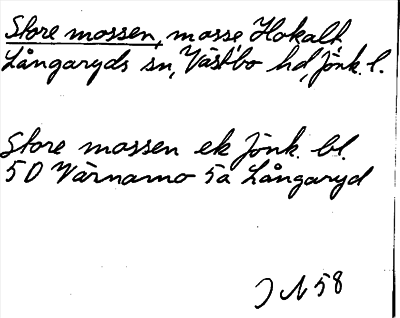 Store mossen, mosse Hokalt
Långaryds sn, Västbo hd, Jönk. l.
Store mossen ek Jönk. bl.
5D Värnamo 5a Långaryd
58